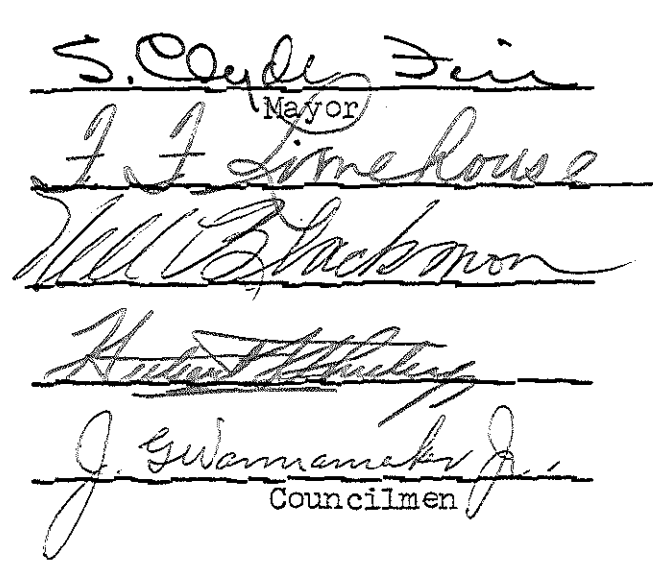 S. Clyde Fair
Mayor
F F Limehouse
Nell Blackmon
J. G Wannamaker Jr.
Councilmen